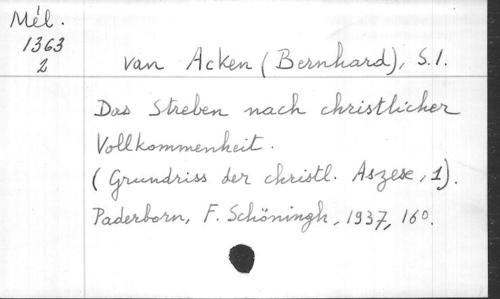 Mél.
1363
2
van Acken (Bernhard), S.I.
Das Streben nach christlicher
Vollkommenheit.
(Grundriss der christl. Aszese, 1).
Paderborn, F. Schöningh, 1937, 16°.